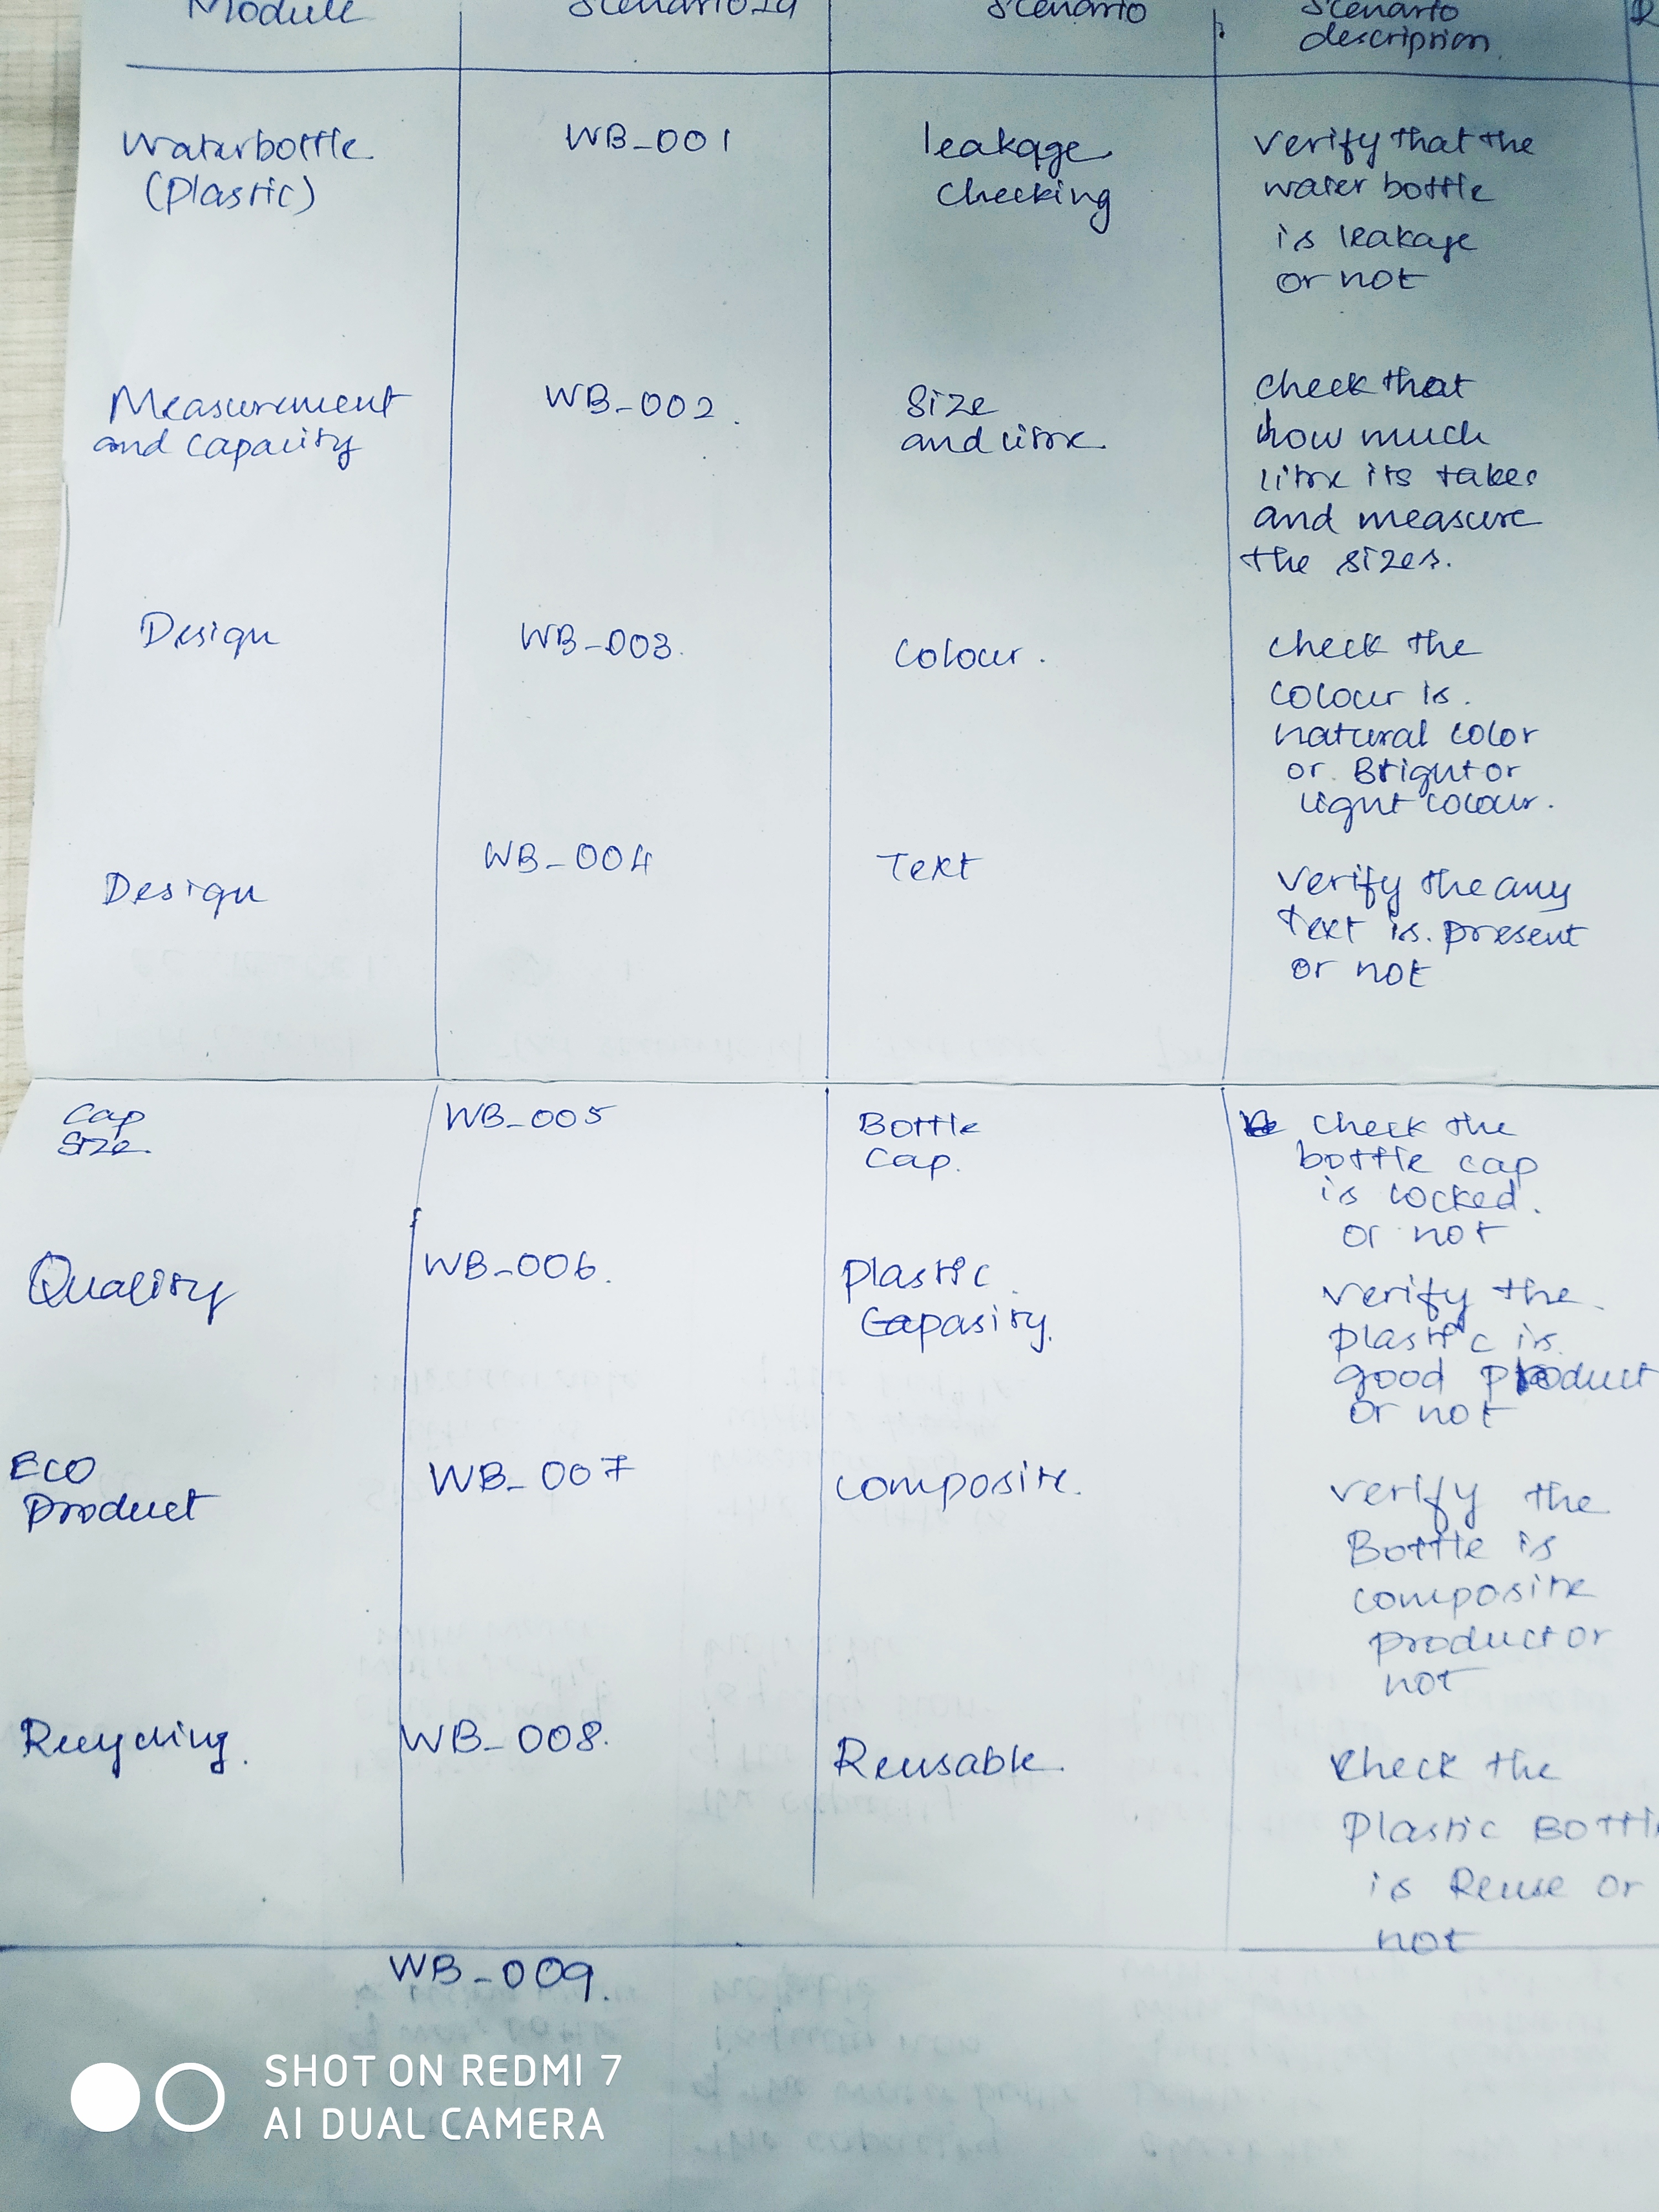 Module Scenario Id Scenario Scenario
description
Waterbottle WB_001 leakage verify that the
(Plastic) Checking water bottle
is leakage
or not
Measurement WB_002. Size check that
and capacity and litre. how much
litre its takes
and measure
the sizes.
Design WB_003. Colour. check the
colour is.
natural color
or Bright or
light colour.
Design WB_004 Text verify the any
text is. present
or not
Cap WB_005 Bottle Check the
Size. Cap. bottle cap
is locked.
or not
Quality WB_006. Plastic. verify the
Capasity. plastic is
good product
or not
ECO WB_007 composite. verify the
product Bottle is
composite
product or
not
Recycling. WB_008. Reusable. Check the
Plastic Bottl
is Reuse or
not
WB_009.
SHOT ON REDMI 7
AI DUAL CAMERA